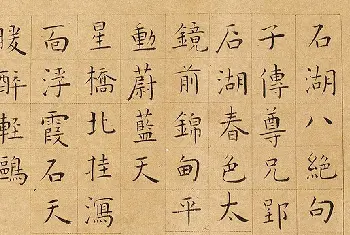 石湖八絶句
子傳尊兄郢
石湖春色太
鏡前錦甸平
動蔚藍天
星橋北挂瀉
面浮霞石天
暖醉輕鷗